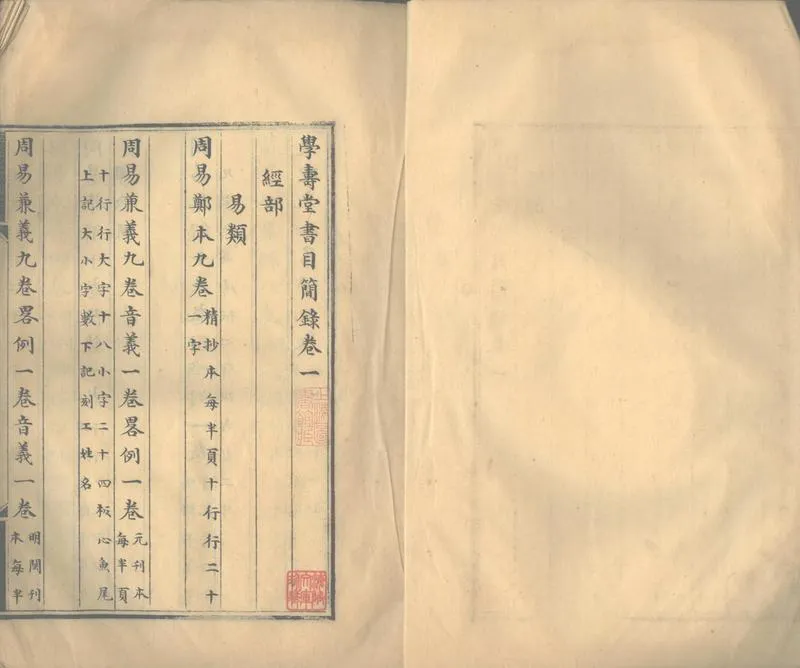 學壽堂書目簡錄卷一
經部
易類
周易鄭本九卷精抄本每半頁十行行二十
一字
周易兼義九卷音義一卷畧例一卷元刊本
每半頁
十行行大字十八小字二十四板心魚尾
上記大小字數下記刻工姓名
周易兼義九卷畧例一卷音義一卷明閩刊
本每半